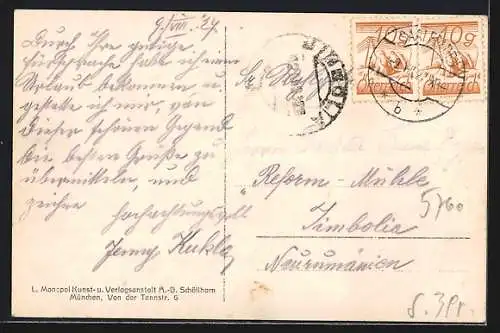 9./VIII. 27
Durch Ihre gütige
Fürsprache habe ich einen
Urlaub bekommen u.
gestatte ich mir, von
dieser schönen Gegend
die besten Grüße zu
übermitteln, und
zeichne
Hochachtungsvoll
Jenny Kukla
L. Monopol Kunst- u. Verlagsanstalt A.-G. Schöllhorn
München, Von der Tannstr. 6
JIMBOLIA
10g
b
"Reform-Mühle"
Jimbolia
Neurumänien
5760